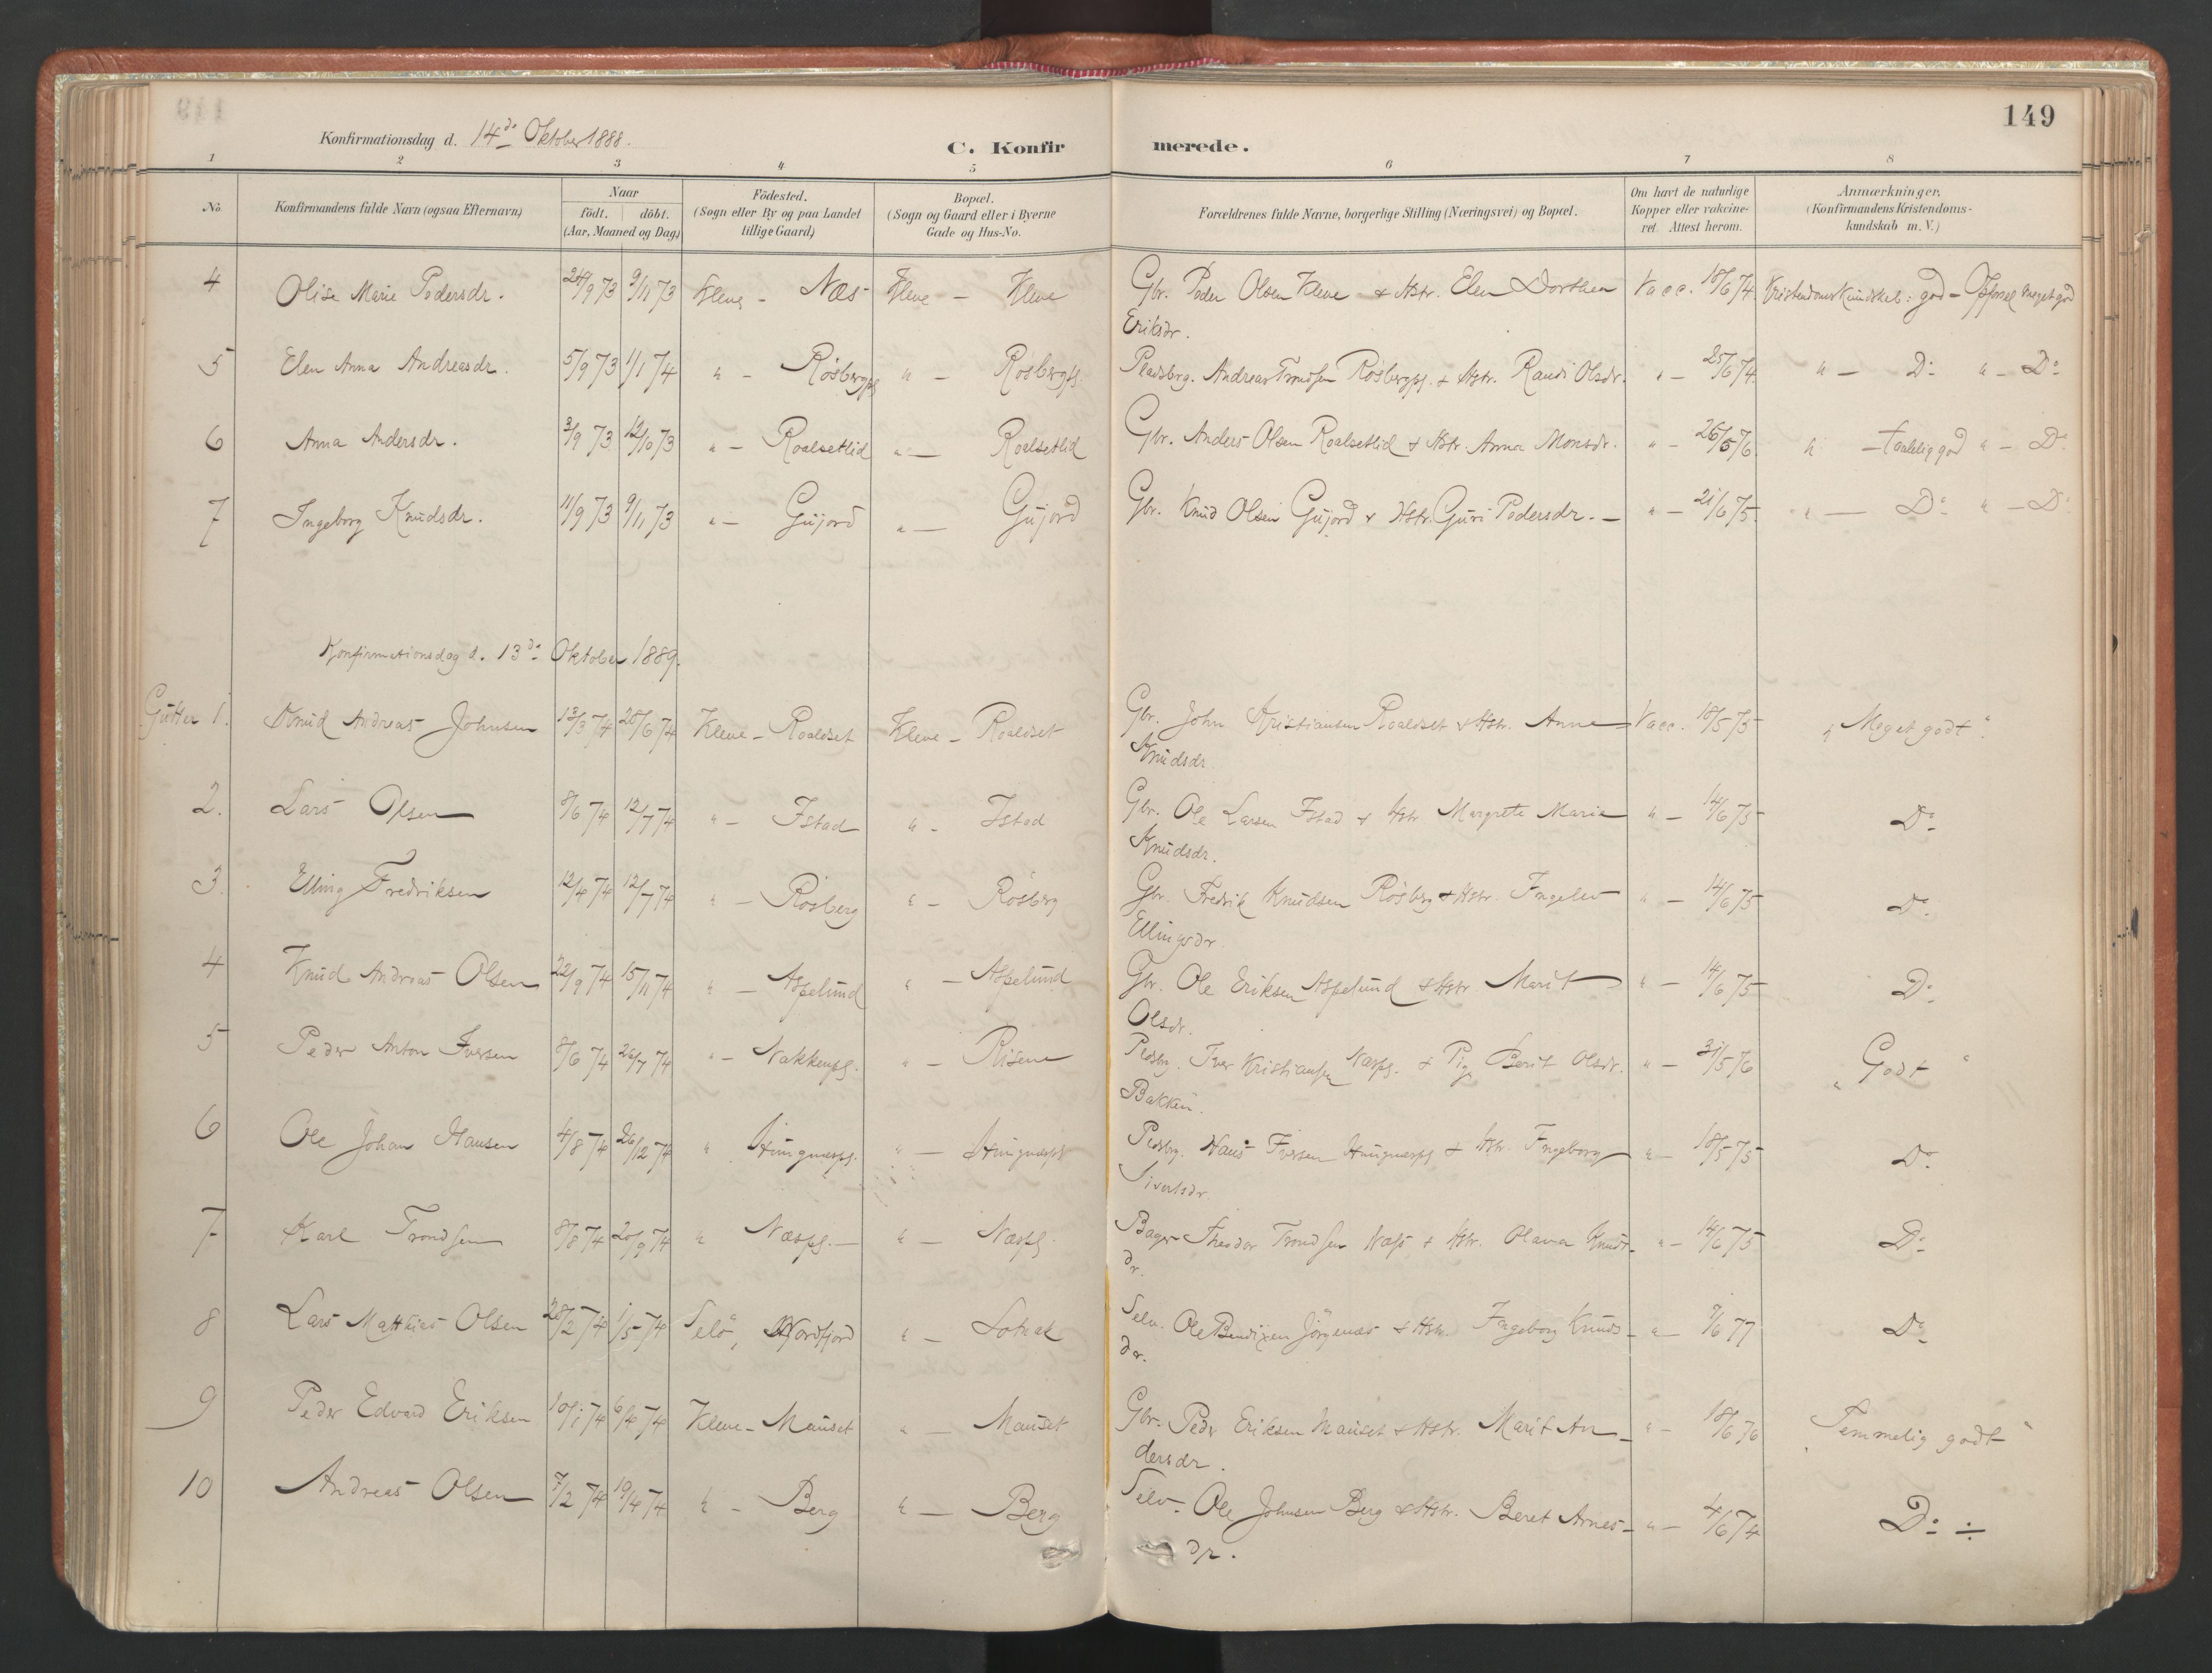 149
Konfirmationsdag d. 14de Oktober 1888.
C. Konfirmerede.
1 2 3 4 5 6 7 8
No. Konfirmandens fulde Navn (ogsaa Efternavn) Naar födt. döbt. (Aar, Maaned og Dag) Födested. (Sogn eller By og paa Landet tillige Gaard) Bopæl. (Sogn og Gaard eller i Byerne Gade og Hus-No. Forældrenes fulde Navne, borgerlige Stilling (Næringsvei) og Bopæl. Om havt de naturlige Kopper eller vakcineret. Attest herom. Anmærkninger. (Konfirmandens Kristendomskundskab m. V.)
4 Olise Marie Pedersdr. 24/9 73 9/11 73 Kleve - Næs Kleve - Kleve Gbr. Peder Olsen Kleve & Hstr. Elen Dorthea Vacc. 18/6 74. Kristendomskundskab: god - Opførsel meget god
Eriksdr.
5 Elen Anna Andreasdr. 5/9 73 1/1 74 " - Rösbergpl. " - Rösbergpl. Pladsbrg. Andreas Trondsen Rösbergpl. & Hstr. Randi Olsdr. " - 25/6 74. " - Do " - Do
6 Anna Andersdr. 3/9 73 12/10 73 " - Roalsetlid " - Roalsetlid Gbr. Anders Olsen Roalsetlid & Hstr. Anna Monsdr. " - 26/5 76. " - taalelig god " - Do
7 Ingeborg Knudsdr. 11/9 73 9/11 73 " - Gujord " - Gujord Gbr. Knud Olsen Gujord & Hstr. Guri Pedersdr. - " - 21/6 75. " - Do " - Do
Konfirmationsdag d. 13de Oktober 1889.
Gutter 1. Knud Andreas Johnsen 13/3 74 28/6 74 Kleve - Roaldset Kleve - Roaldset Gbr. John Kristiansen Roaldset & Hstr. Anne Vacc. 18/5 75 "Meget godt".
Knudsdr.
2. Lars Olsen 8/6 74 12/7 74 " - Istad " - Istad Gbr. Ole Larsen Istad & Hstr Margrete Marie " - 14/6 75 Do
Knudsdr.
3. Elling Fredriksen 12/4 74 12/7 74 " - Rösberg " - Rösberg Gbr. Fredrik Knudsen Rösberg & Hstr. Ingelev " - 14/6 75 Do
Ellingsdr.
4 Knud Andreas Olsen 22/9 74 15/11 74 " - Aspelund " - Aspelund Gbr. Ole Eriksen Aspelund & Hstr. Marit " - 14/6 75 Do
Olsdr.
5 Peder Anton Iversen 8/6 74 26/7 74 " - Nakkenpl. " - Risene Pldsbrg. Iver Kristiansen Næspl. & Pige Berit Olsdr. " - 31/5 76 "Godt"
Bakken.
6 Ole Johan Hansen 4/8 74 26/12 74 " Hungnæspl. " - Hungnæspl Pldsbrg. Hans Iversen Hungnæspl & Hstr. Ingeborg " - 18/5 75 Do
Sivertsdr.
7 Karl Trondsen 8/8 74 20/9 74 " Næspl. - " - Næspl. Bager Theodor Trondsen Næs & Hstr. Olava Knuds- " - 14/6 75 Do
dr.
8 Lars Matthias Olsen 28/2 74 1/5 74 Selö, Nordfjord " - Selv. Ole Bendixen Jörgenæs & Hstr. Ingeborg Knuds- " - 7/6 77 Do
dr.
9 Peder Edvard Eriksen 10/1 74 6/4 74 Kleve - Mauset " - Mauset Gbr. Peder Eriksen Mauset & Hstr. Marit An- " - 18/6 76 "Temmelig godt"
dersdr.
10 Andreas Olsen 7/2 74 19/4 74 " - Berg " - Berg Selv. Ole Johnsen Berg & Hstr. Beret Arnes- " - 4/6 74 Do ÷
dr.